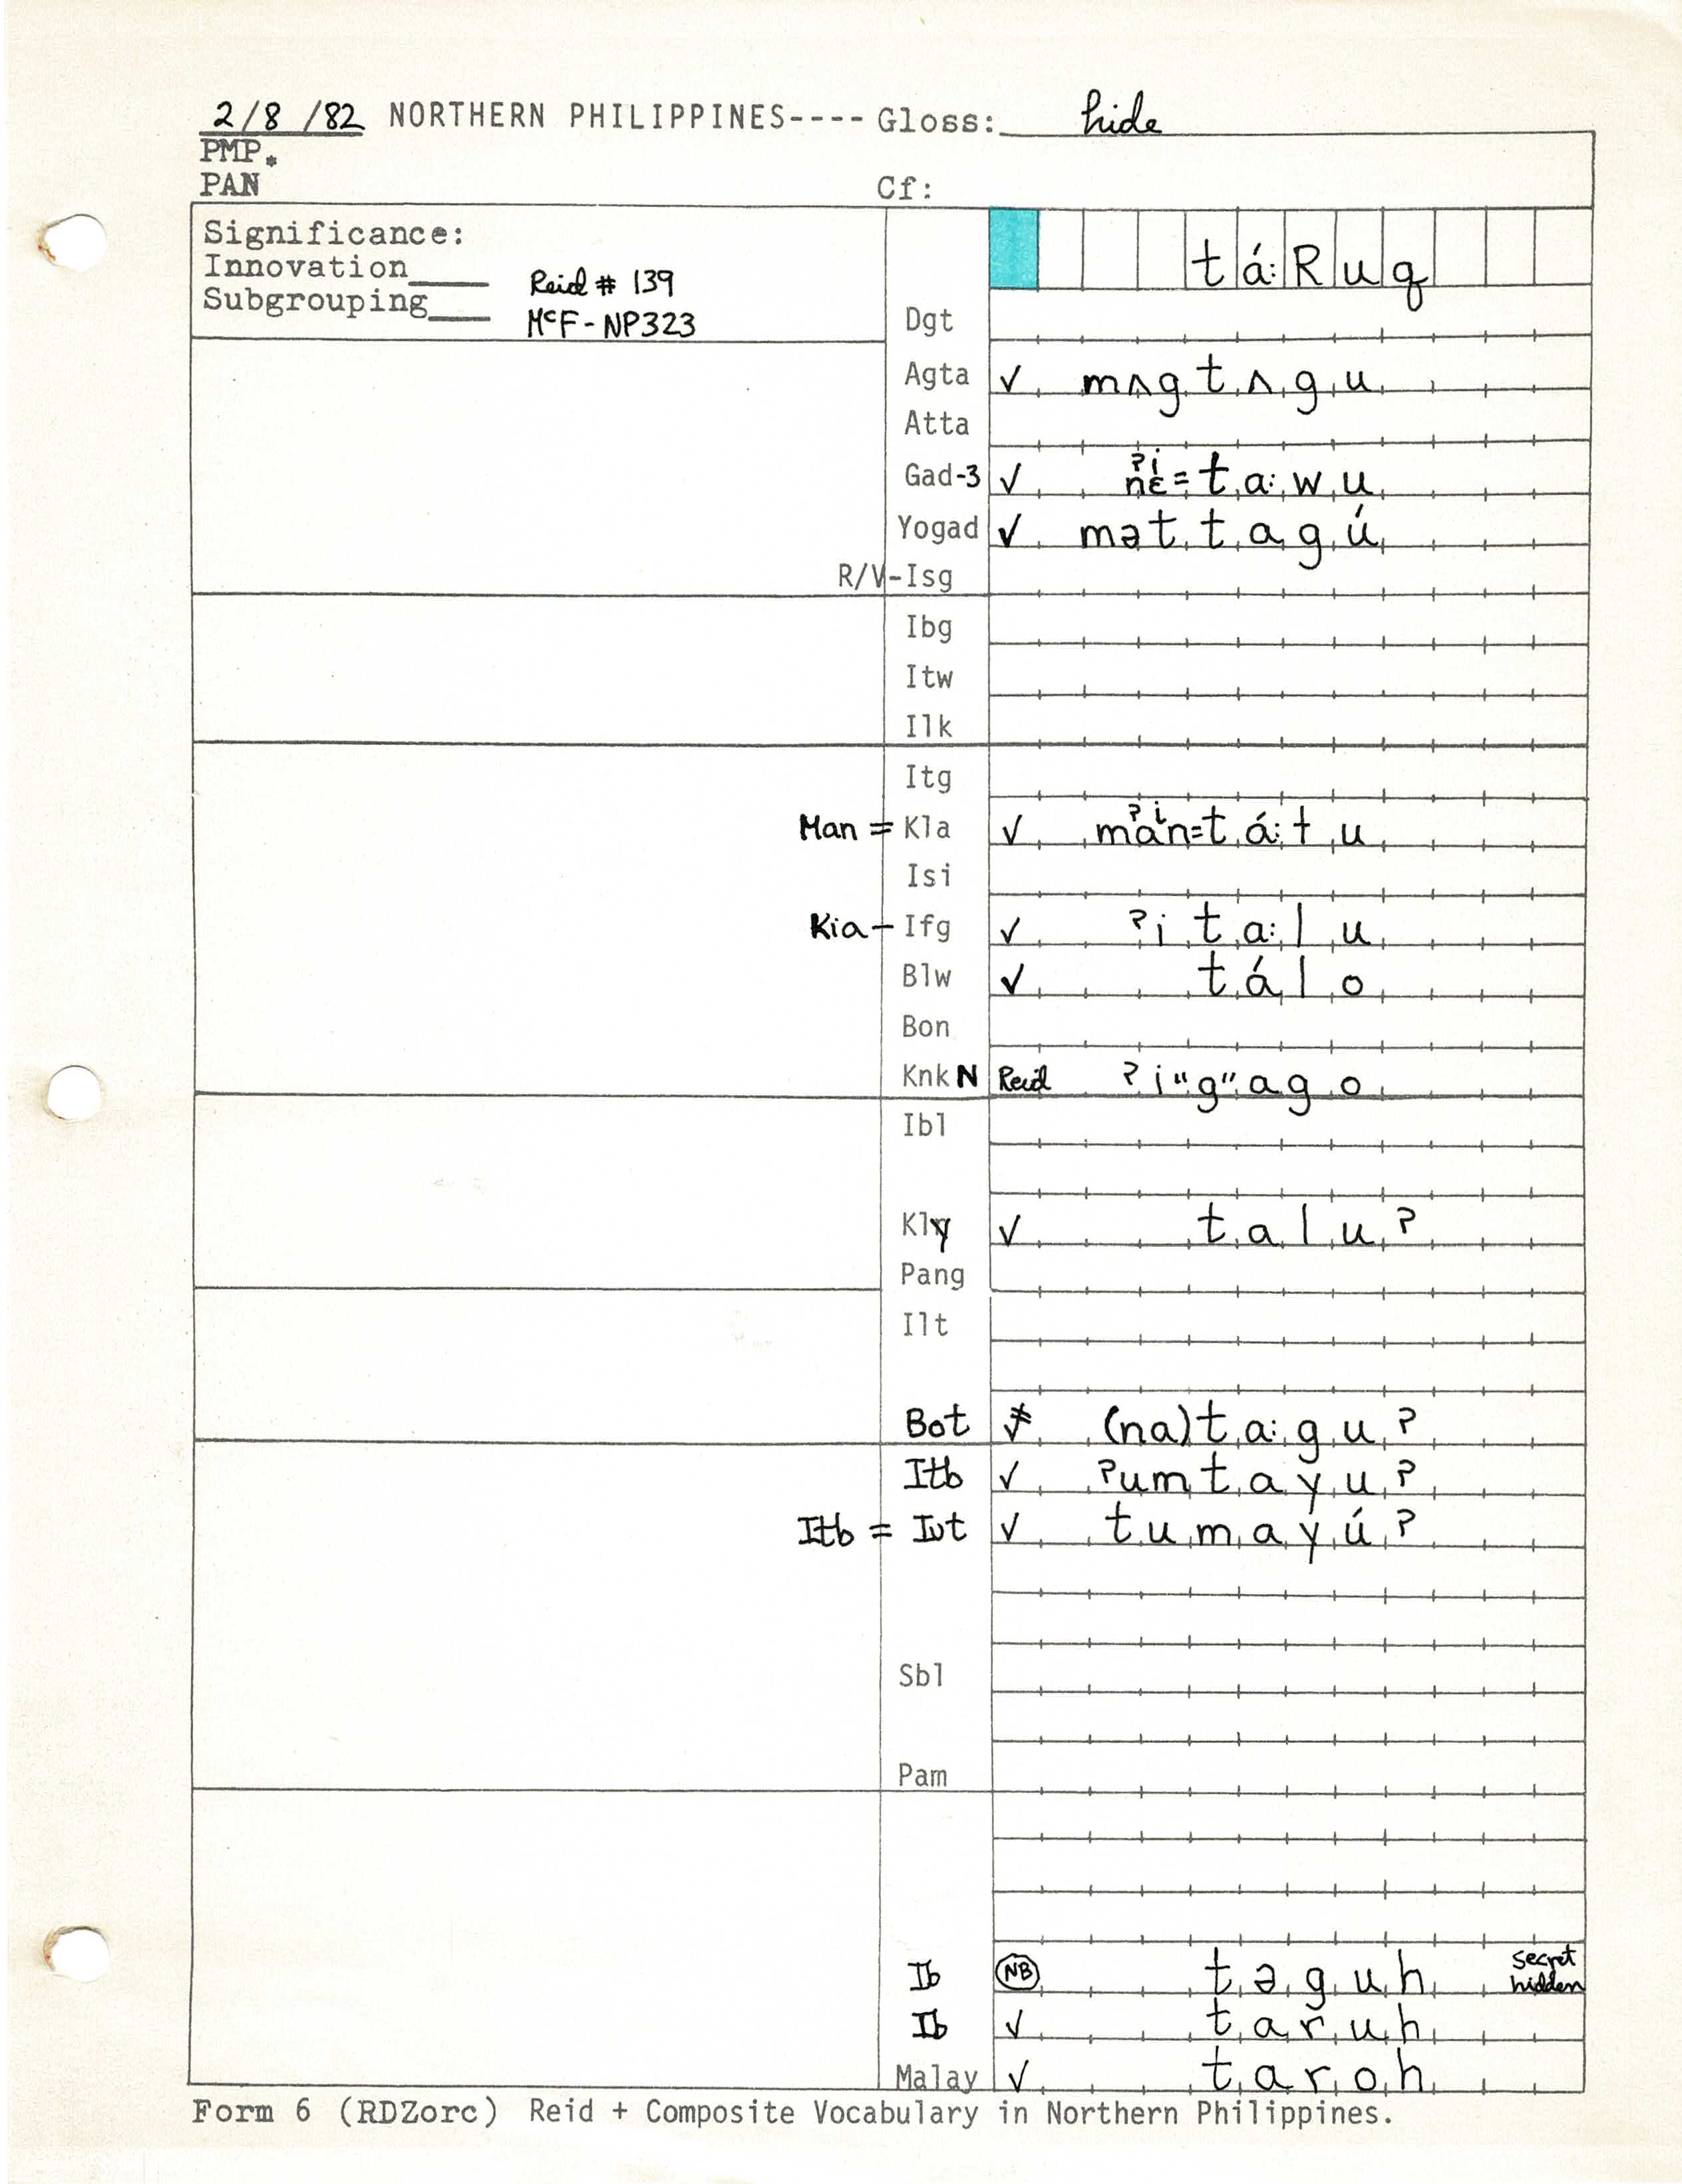 2/8/82 NORTHERN PHILIPPINES---- Gloss: hide
PMP.
PAN Cf:
Significance:
Innovation____ Reid # 139
Subgrouping___ McF-NP323
tá:Ruq
Dgt
Agta ✓ mʌgtʌgu
Atta
Gad-3 ✓ ʔi
nɛ=ta:wu
Yogad ✓ məttagú
R/V-Isg
Ibg
Itw
Ilk
Itg
ʔi
Man = Kla ✓ man=tá:łu
Isi
Kia- Ifg ✓ ʔita:lu
Blw ✓ tálo
Bon
Knk N Reid ʔi"g"ago
Ibl
Kly ✓ taluʔ
Pang
Ilt
Bot ≠ (na)ta:guʔ
Itb ✓ ʔumtayuʔ
Itb = Ivt ✓ tumayúʔ
Sbl
Pam
Ib NB təguh secret
hidden
Ib ✓ taruh
Malay ✓ taroh
Form 6 (RDZorc) Reid + Composite Vocabulary in Northern Philippines.